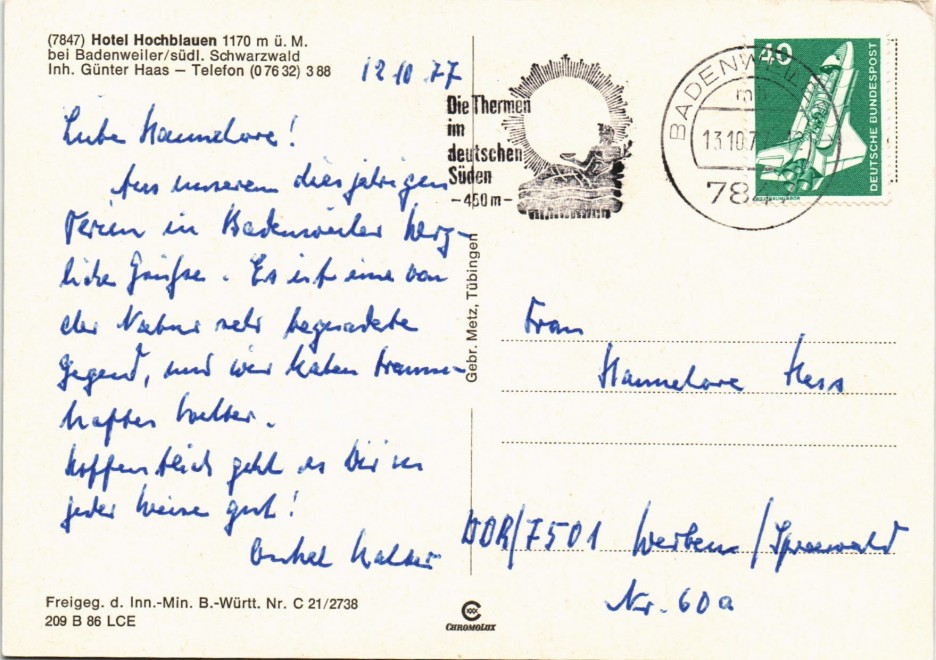 (7847) Hotel Hochblauen 1170 m ü. M.
bei Badenweiler/südl. Schwarzwald
Inh. Günter Haas – Telefon (0 76 32) 3 88
12 10 77
Liebe Hannelore!
Aus unserem diesjährigen
Ferien in Badenweiler herz-
liche Grüße. Es ist eine von
der Natur sehr begnadete
Gegend, und wir haben traum-
haftes Wetter.
Hoffentlich geht es Dir in
jeder Weise gut!
Onkel Walter
Freigeg. d. Inn.-Min. B.-Württ. Nr. C 21/2738
209 B 86 LCE
Gebr. Metz, Tübingen
CHROMOLUX
Die Thermen
im
deutschen
Süden
– 450 m –
BADENW
13.10.7
784
40
DEUTSCHE BUNDESPOST
Frau
Hannelore Hess
DDR/7501 Werben/Spreewald
Nr. 60a